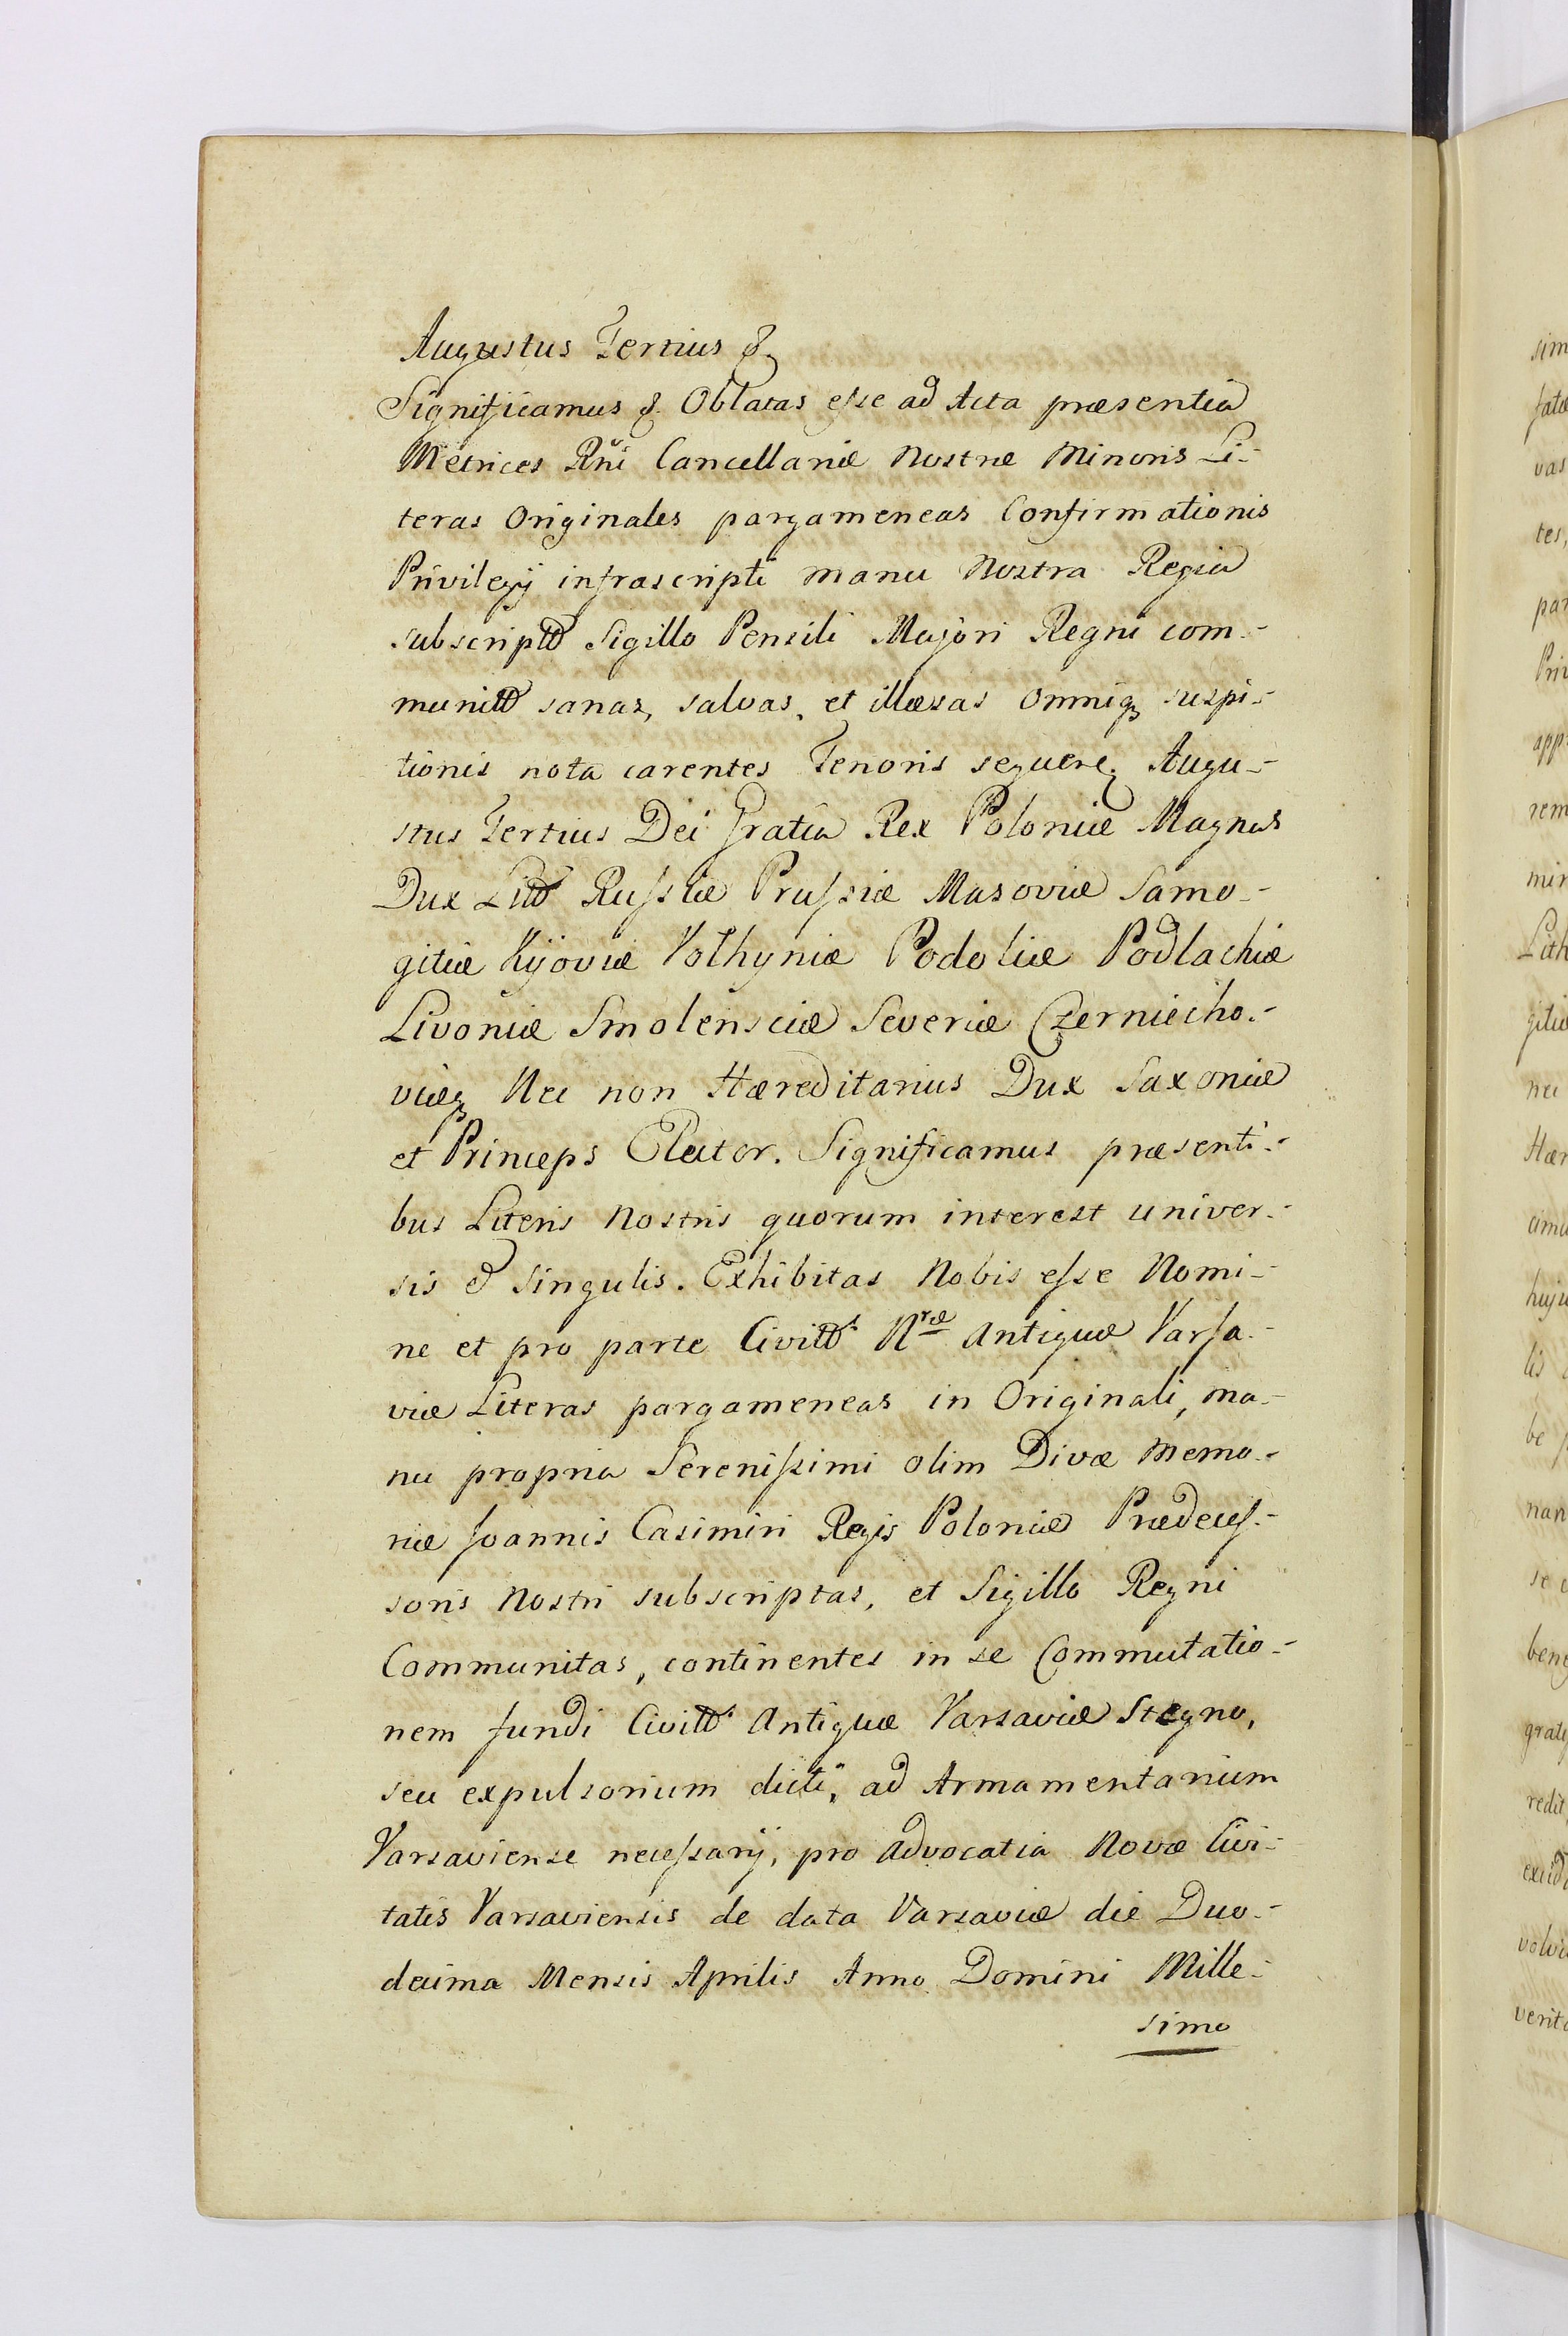 Augustus Tertius &
Significamus & Oblatas esse ad Acta præsentia
Metrices Rñi Cancellariæ Nostræ Minoris Li-
teras Originales pargameneas Confirmationis
Privilegij infrascripti manu Nostra Regia
subscriptas Sigillo Pensili Majori Regni com-
munitas sanas, salvas, et illæsas omniq suspi-
tionis nota carentes Tenoris sequen: Augu-
stus Tertius Dei Gratia Rex Poloniæ Magnus
Dux Litt Russiæ Prussiæ Masoviæ Samo-
gitiæ Kijoviæ Volhyniæ Podoliæ Podlachiæ
Livoniæ Smolensciæ Severiæ Czerniecho-
viæq Nec non Hæreditarius Dux Saxoniæ
et Princeps Elector. Significamus præsenti-
bus Literis Nostris quorum interest univer-
sis & singulis. Exhibitas Nobis esse Nomi-
ne et pro parte Civitts Nræ Antiquæ Varsa-
viæ Literas pargameneas in Originali, ma-
nu propria Serenissimi olim Divæ Memo-
riæ Joannis Casimiri Regis Poloniæ Prædeces-
soris Nostri subscriptas, et Sigillo Regni
Communitas, continentes in se Commutatio-
nem fundi Civitts Antiquæ Varsaviæ Stegno,
seu expulsorium dicti, ad Armamentarium
Varsaviense necessarij, pro Advocatia Novæ Civi-
tatis Varsaviensis de data Varsaviæ die Duo-
decima Mensis Aprilis Anno Domini Mille-
simo